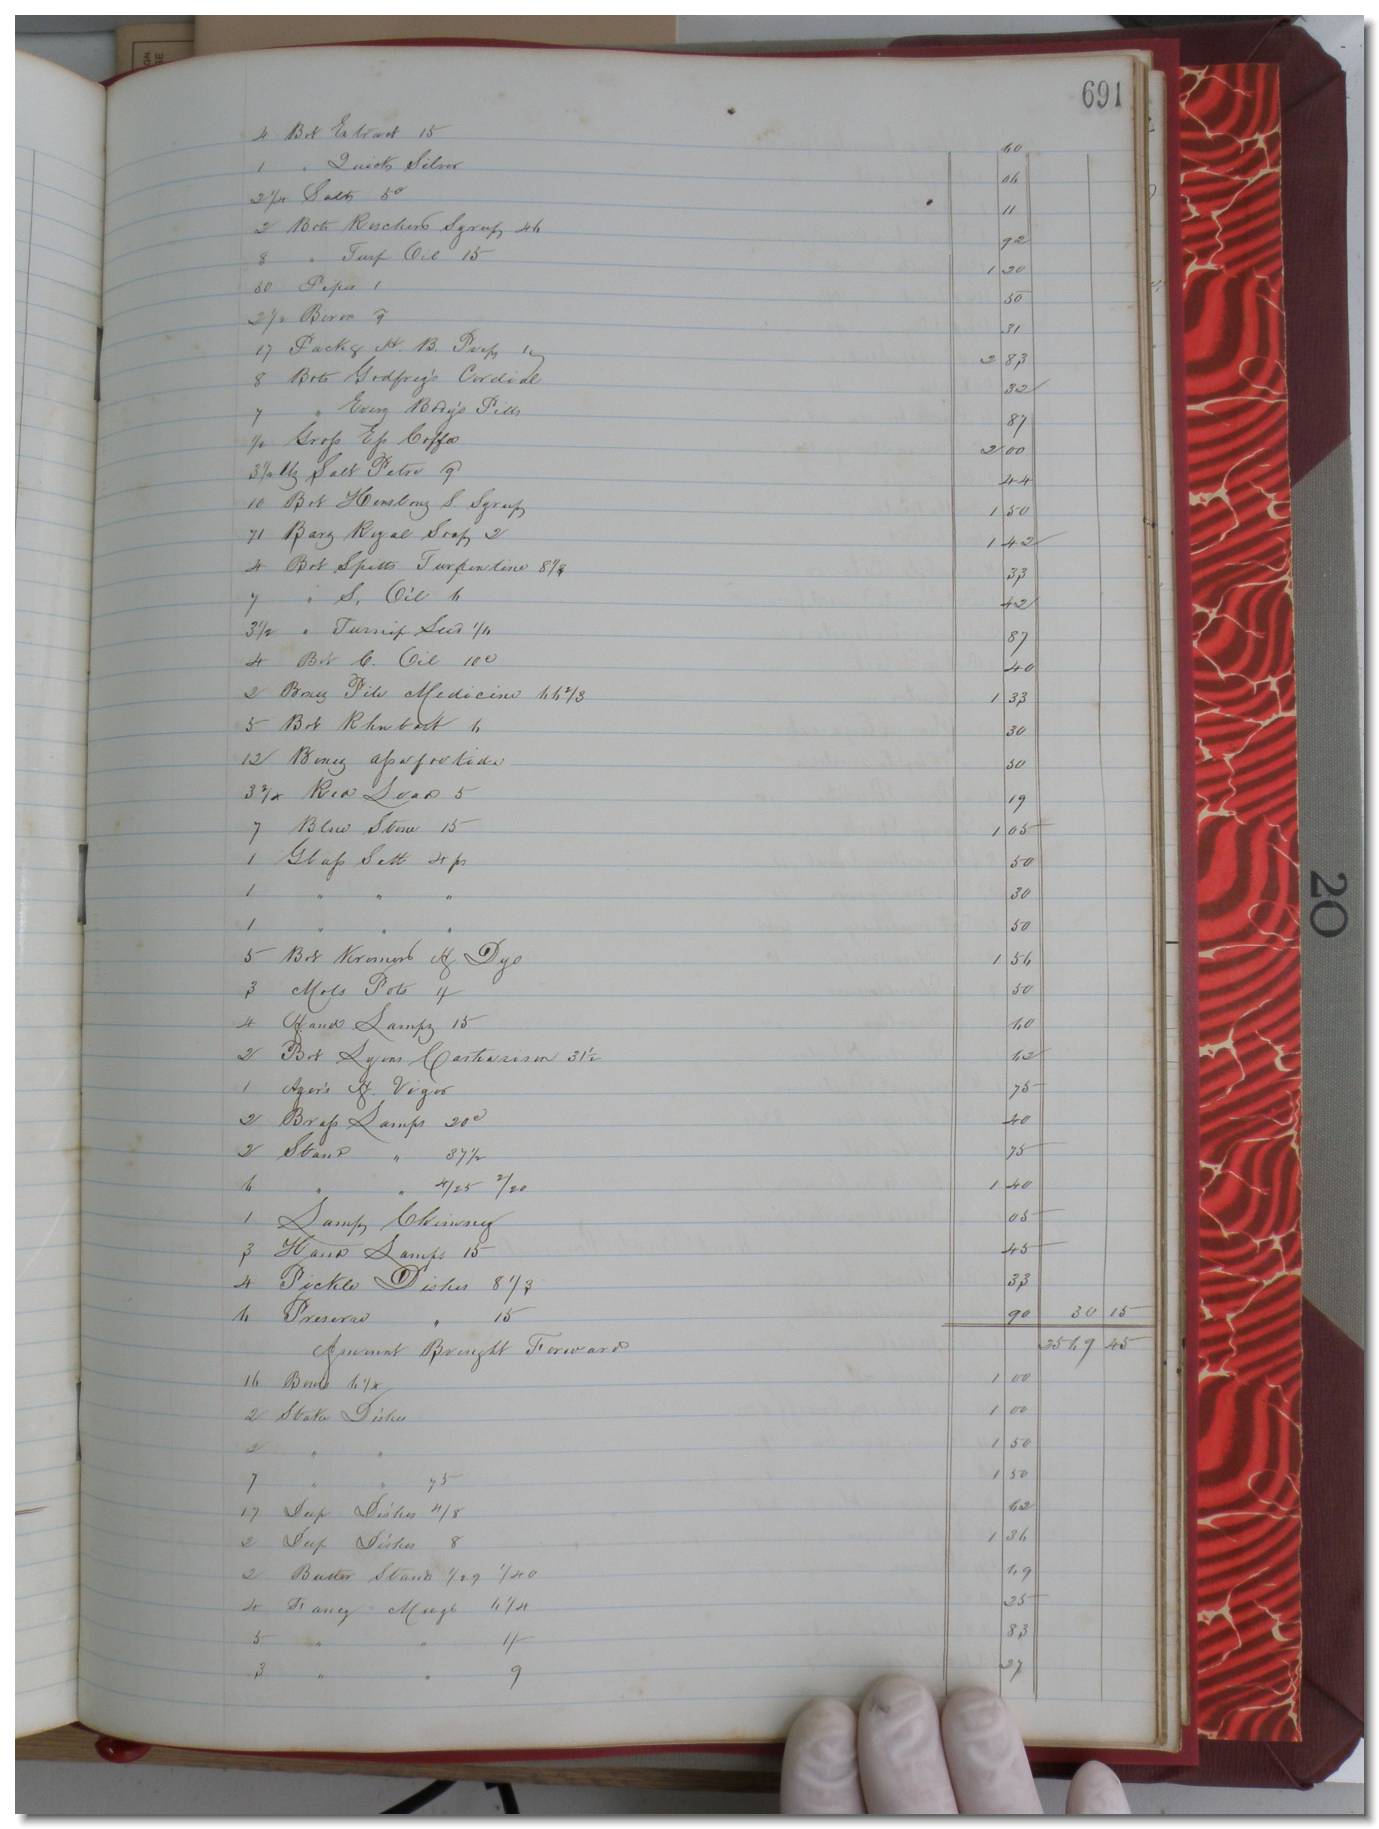 691
4 Bot Extract 15 60
1 " Quick Silver 06
2 1/4 Salts 5c 11
2 Bots Roschers Syrup 46 92
8 " Turf Oil 15 1 20
50 Pipes 1 50
2 1/2 Borax 9 31
17 Packg H. B. 2 83
8 Bots Godfrey's Cordial 32
7 " Every Body's Pills 87
1/2 Gross Ess Coffee 2 00
3 1/2 lbs Salt Petre 9 44
10 Bot S Syrup 1 50
71 Bars Royal Soap 2 1 42
4 Bot Spitts Turpentine 8 1/3 33
7 " S. Oil 6 42
3 1/2 " Turnip Seed 1/6 87
4 Bot C. Oil 10c 40
2 Boxes Pile Medicine 66 2/3 1 33
5 Bot 6 30
12 Boxes assafoetida 50
3 3/4 Red Lead 5 19
7 Blue Stone 15 1 05
1 Glass Sett 4 ps 50
1 " " " 30
1 " " " 50
5 Bot Kromers H Dye 1 56
3 Mols Pots 1/ 50
4 Hand Lamps 15 60
2 Bot Lyons 31 1/2 62
1 Ayer's H. Vigor 75
2 Brass Lamps 20c 40
2 Stand " 37 1/2 75
6 " " 4/25 2/20 1 40
1 Lamp Chimney 05
3 Hand Lamps 15 45
4 Pickle Dishes 8 1/3 33
6 Preserve " 15 90 30 15
Amount Brought Forward 2569 45
16 Bowls 6 1/4 1 00
2 Stake Dishes 1 00
2 " " 1 50
7 " " 75 1 50
17 Deep Dishes 4/8 62
2 Deep Dishes 8 1 36
2 Butter Stands 1/29 1/40 69
4 Fancy Mugs 6 1/4 25
5 " " 1/ 83
3 " " 9 27
20